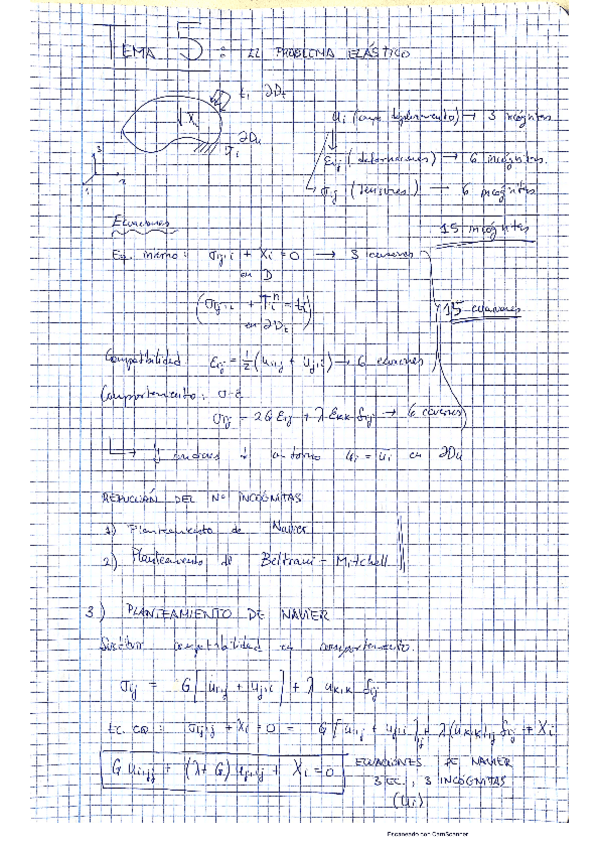 TEMA 5: EL PROBLEMA ELÁSTICO
t_i ∂D_t
X_i
∂D_u
3
2
1
u_i (campo desplazamiento) → 3 incógnitas
ε_ij (deformaciones) → 6 incógnitas
σ_ij (tensores) → 6 incógnitas
15 incógnitas
Ecuaciones
Eq. interno: σ_ij,i + X_i = 0 → 3 ecuaciones
en D
en ∂D_t
15 ecuaciones
Compatibilidad ε_ij = 1/2 (u_i,j + u_j,i) → 6 ecuaciones
Comportamiento: σ-ε
σ_ij = 2G ε_ij + λ ε_kk δ_ij → 6 ecuaciones
contorno u_i = u_i en ∂D_u
REDUCCIÓN DEL Nº INCÓGNITAS
1) Planteamiento de Navier
2) Planteamiento de Beltrami - Mitchell
3) PLANTEAMIENTO DE NAVIER
compatibilidad en comportamiento.
σ_ij = G[u_i,j + u_j,i] + λ u_k,k δ_ij
Ec. EQ: σ_ij,j + X_i = 0 = G[u_i,j + u_j,i],j + λ(u_k,k),j δ_ij + X_i
G u_i,jj + (λ+G) u_j,ij + X_i = 0
ECUACIONES DE NAVIER
3 EC., 3 INCÓGNITAS
(u_i)
Escaneado con CamScanner